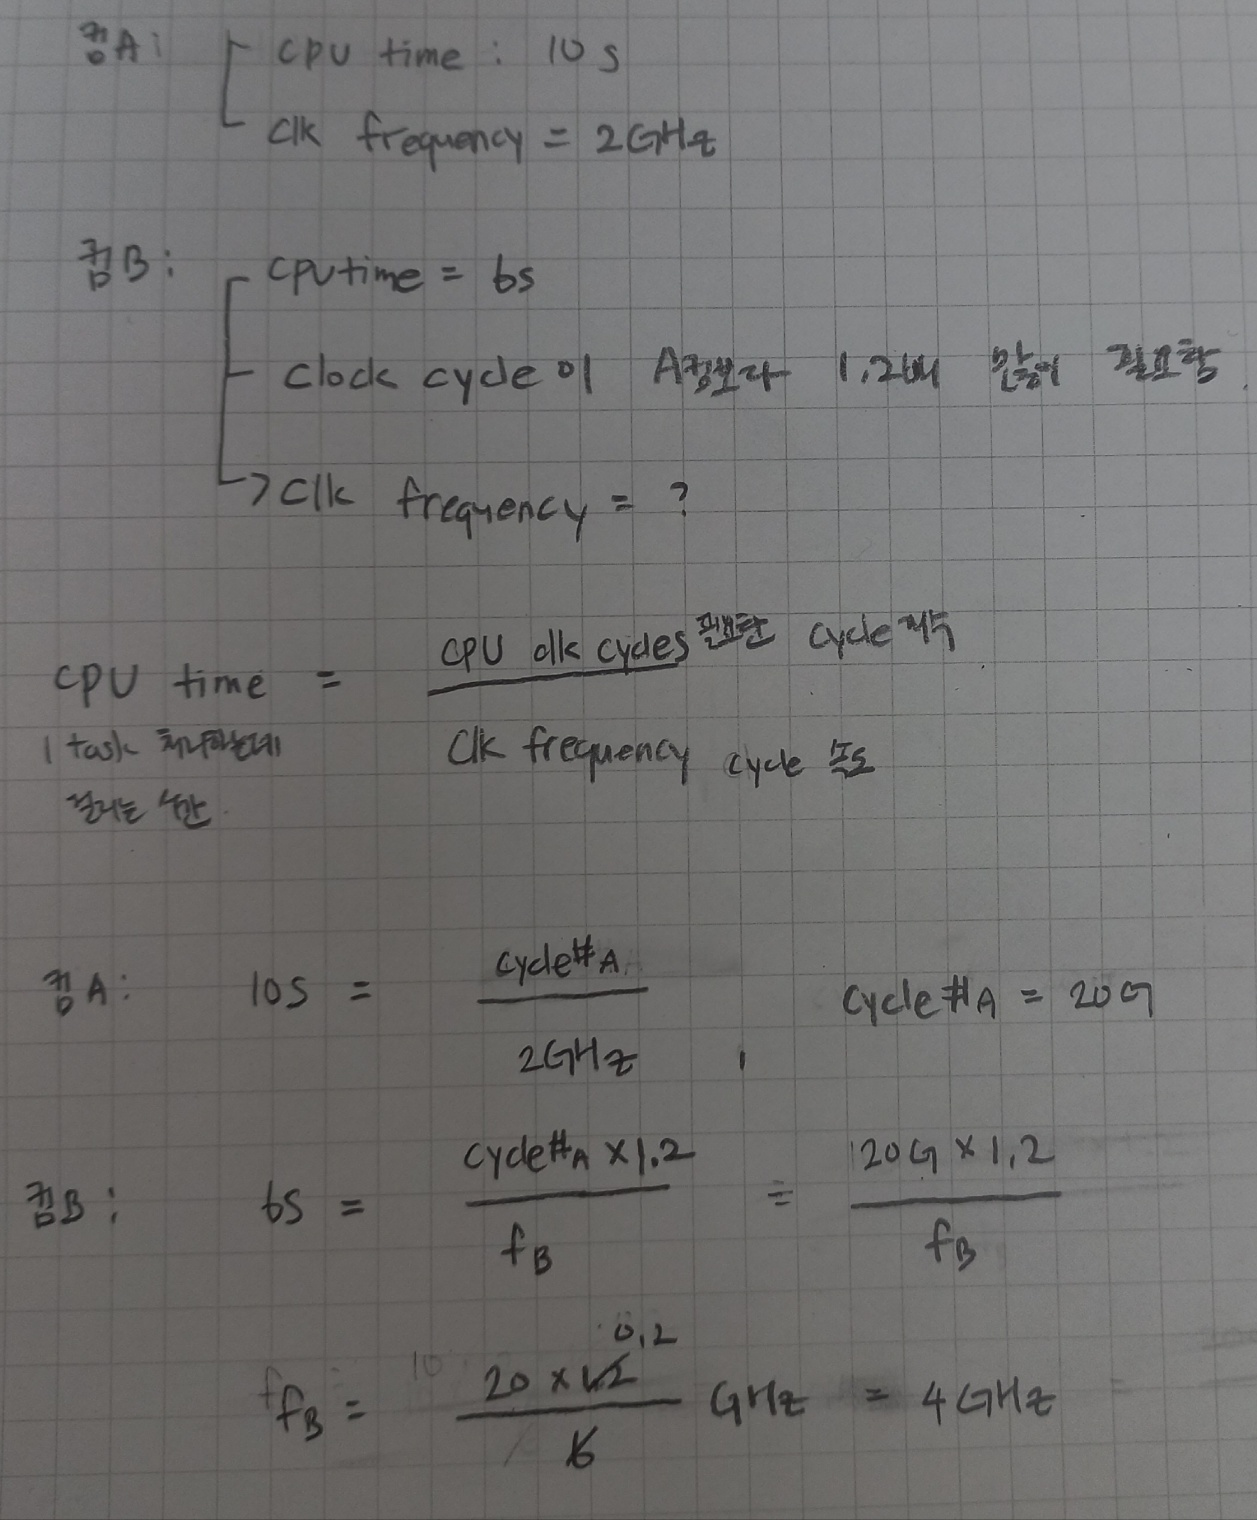 컴A: CPU time : 10s
clk frequency = 2GHz
컴B: CPU time = 6s
clock cycle이 A컴보다 1.2배 많이 필요함.
→ clk frequency = ?
CPU time = CPU clk cycles 필요한 cycle 개수
1 task 처리하는데 clk frequency cycle 속도
걸리는 시간
컴A: 10s = cycle#A / 2GHz , cycle#A = 20G
컴B: 6s = cycle#A × 1.2 / fB = 20G × 1.2 / fB
fB = 20 × 1.2 0.2 / 6 GHz = 4GHz